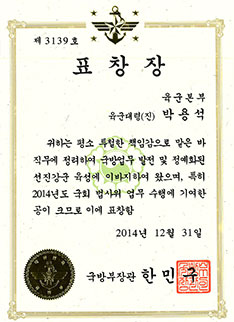 제 3139호
표창장
육군본부
육군대령(진) 박용석
위하는 평소 투철한 책임감으로 맡은 바
직무에 정려하여 국방업무 발전 및 정예화된
선진강군 육성에 이바지하여 왔으며, 특히
2014년도 국회 법사위 업무 수행에 기여한
공이 크므로 이에 표창함
2014년 12월 31일
국방부장관 한민구